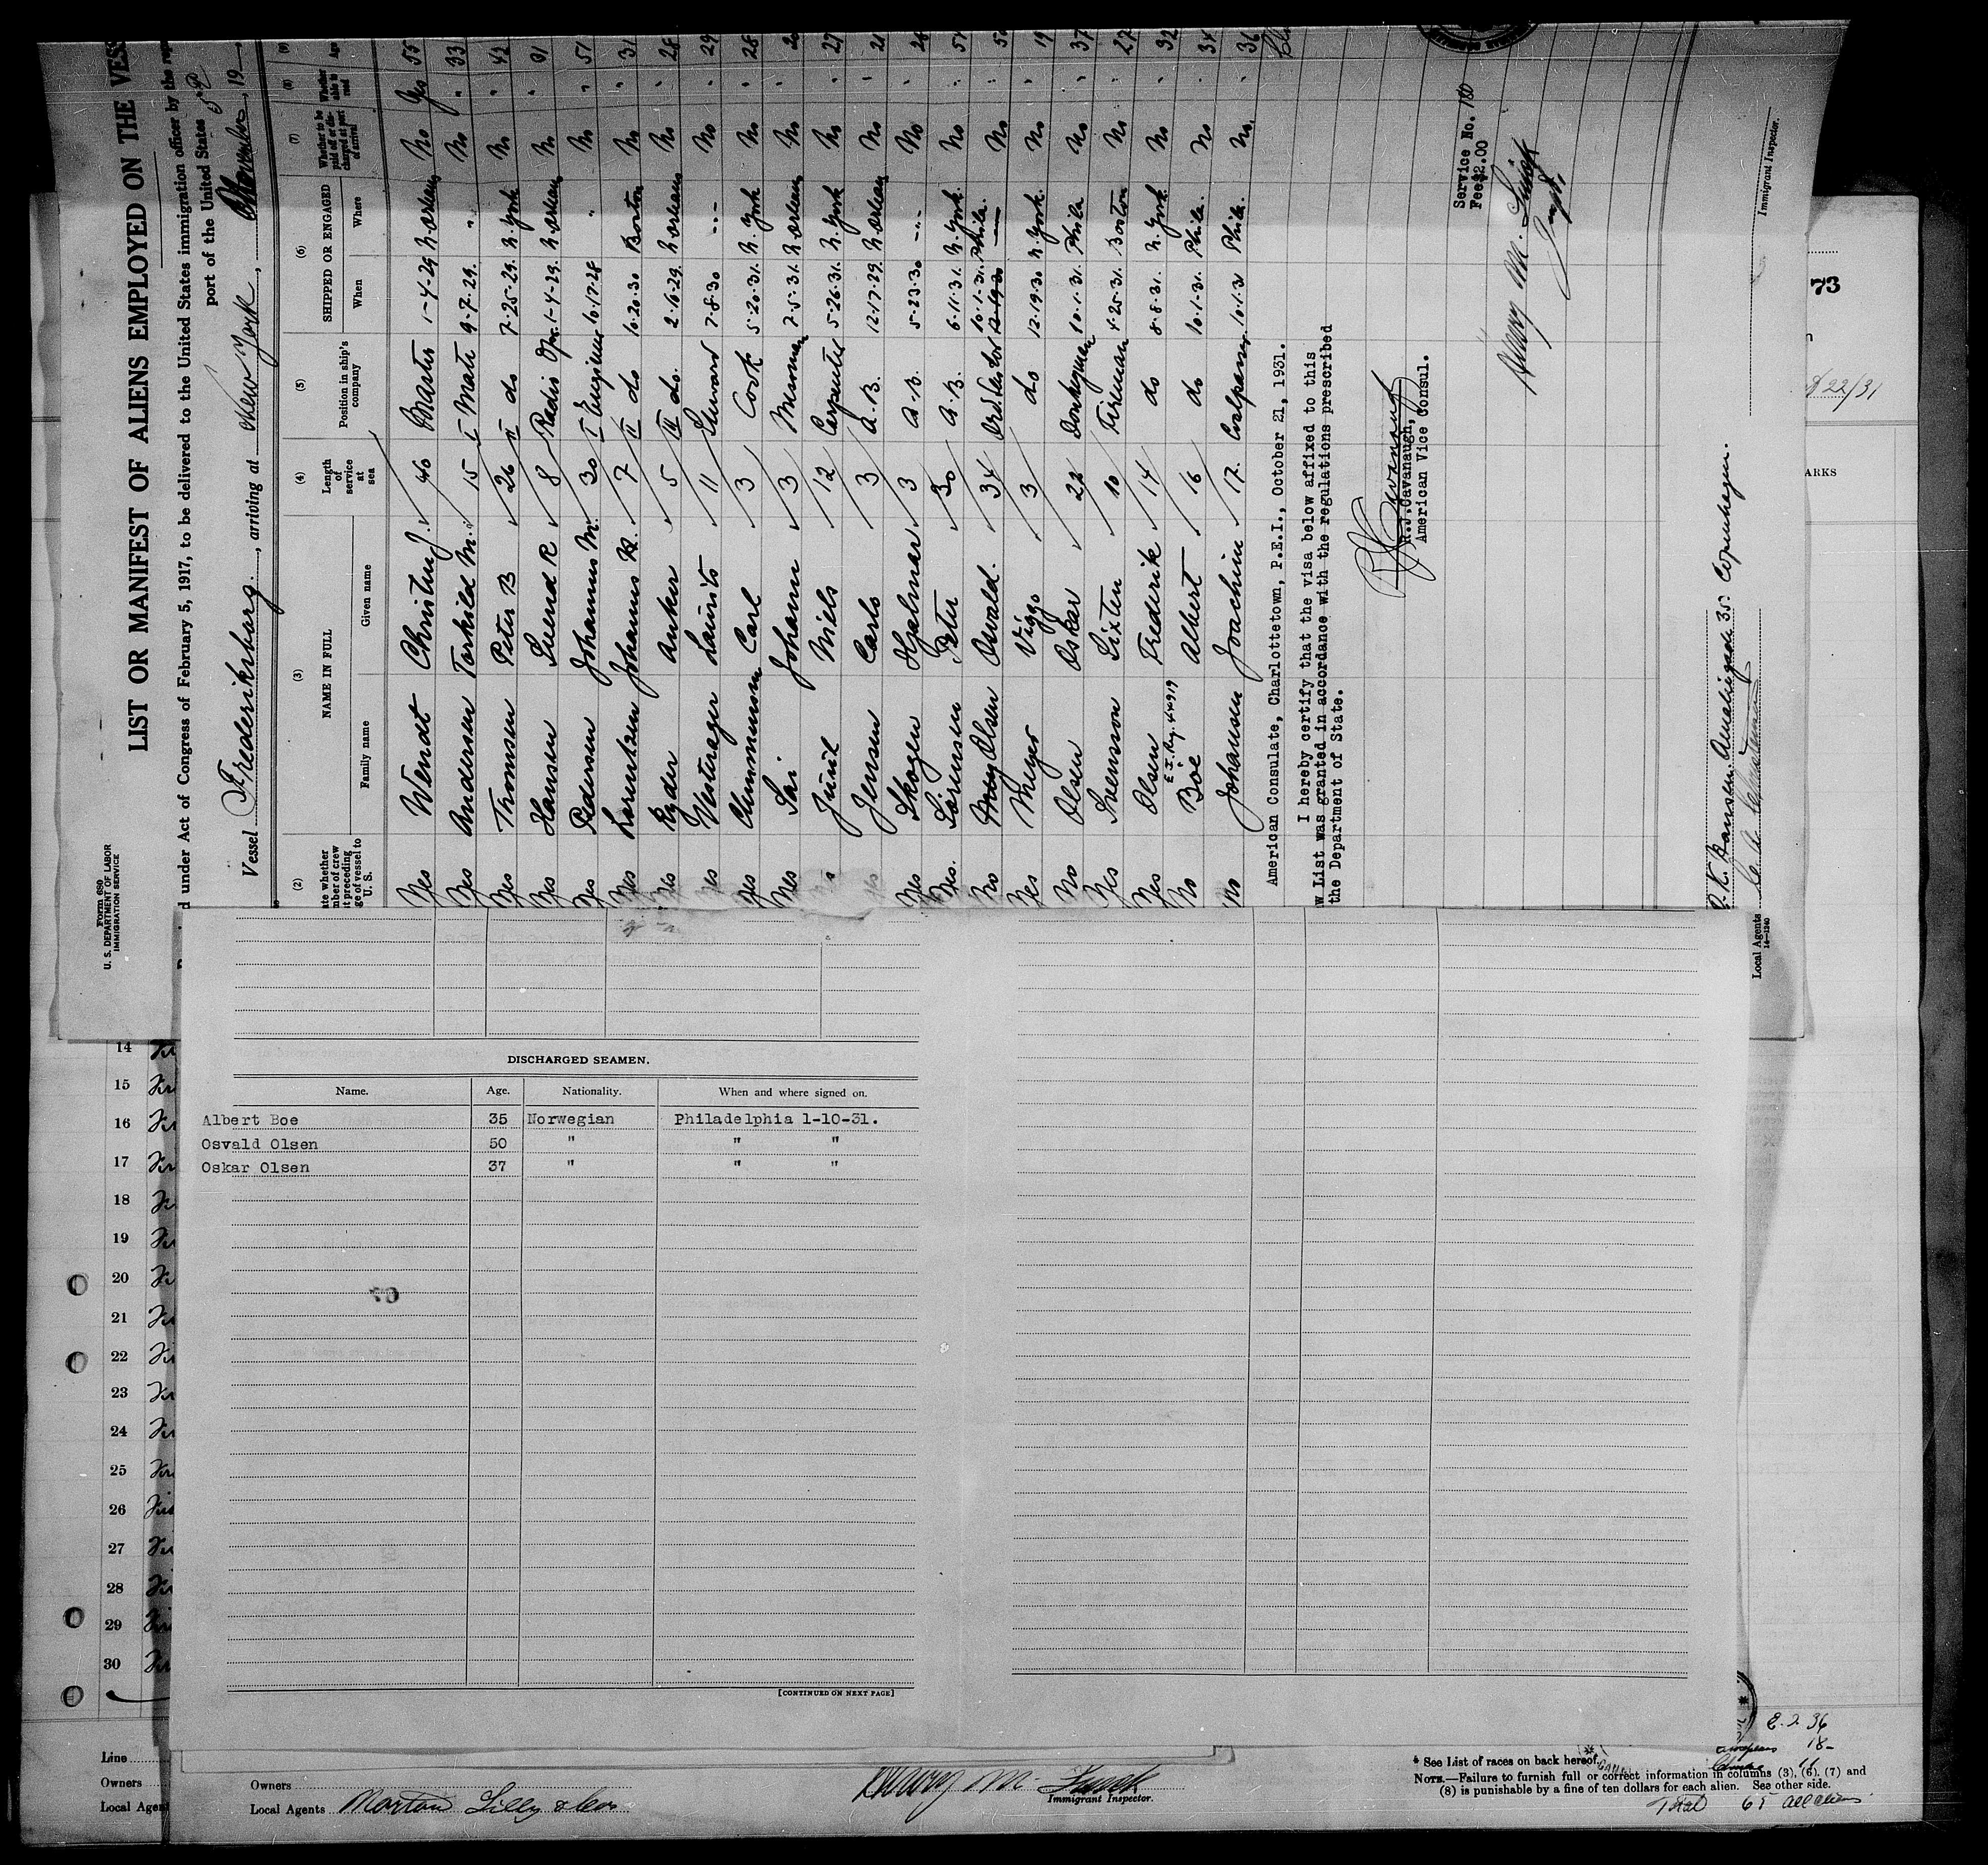 Form 680
U. S. DEPARTMENT OF LABOR
IMMIGRATION SERVICE
LIST OR MANIFEST OF ALIENS EMPLOYED ON THE VESS
d under Act of Congress of February 5, 1917, to be delivered to the United States immigration officer by the rep
port of the United States
Vessel Frederiksborg, arriving at New York, November, 19
(2) (3) (4) (5) (6) (7) (8) (9)
NAME IN FULL
Family name Given name
Length of service at sea
Position in ship's company
SHIPPED OR ENGAGED
When Where
Whether to be paid off or discharged at port of arrival
Whether able to read
Age
Yes Wendt Christian J. 40 Master 1-4-29 N. Orleans No Yes 55
Yes Andersen Torkild M. 15 I Mate 9-7-29. " No " 33
Yes Thomsen Peter B 26 II do 7-25-29. N. York No " 42
Yes Hansen Svend R 8 Radio Opr. 1-4-29. N. Orleans No " 31
Yes Pedersen Johannes M. 30 I Engineer 10-17-28 " No " 51
Yes Lorentzen Johannes 7 II do 10-20-30 Boston No " 31
Yes Ryder Anker 5 III do. 2-16-29. N. Orleans No " 28
Yes Vesterager Laurits 11 Steward 7-8-30 No " 29
Yes Clemmensen Carl 3 Cook 5-20-31. N. York No " 28
Yes Sai Johann 3 Messman 7-5-31. N. Orleans No " 20
Juul Niels 12 Carpenter 5-26-31. N. York No " 27
Jensen Carlo 3 A.B. 12-17-29. N. Orleans No " 21
Yes Skogen Hjalmar 3 A.B. 5-23-30 No " 26
Yes. Sörensen Peter 30 A.B. 6-11-31. N. York. No " 51
No Olsen Osvald. 34 10-1-31. Phila. No " 50
Yes Meyer Viggo 3 do 12-19-30 N. York. No " 19
No Olsen Oskar 22 Donkeyman 10-1-31. Phila No " 37
Yes Svenson Sixten 10 Fireman 4-25-31. Boston No " 27
Yes Olsen Frederik 14 do 8-8-31. N. York. No " 32
No Böe Albert 16 do 10-1-31. Phila. No " 34
No Johansen Joachim 17. Coalpasser 10-1-31 Phila. No. " 36
American Consulate, Charlottetown, P.E.I., October 21, 1931.
I hereby certify that the visa below affixed to this
w List was granted in accordance with the regulations prescribed
the Department of State.
R.J.Cavanaugh,
American Vice Consul.
Service No. 180
Fee $2.00
Immigrant Inspector.
Copenhagen.
Local Agents
14-1240
73
ARKS
14
15
16
17
18
19
20
21
22
23
24
25
26
27
28
29
30
DISCHARGED SEAMEN.
Name. Age. Nationality. When and where signed on.
Albert Boe 35 Norwegian Philadelphia 1-10-31.
Osvald Olsen 50 " " "
Oskar Olsen 37 " " "
[CONTINUED ON NEXT PAGE]
Line
Owners
Local Agent
Owners
Local Agents
Immigrant Inspector.
See List of races on back hereof.
NOTE.—Failure to furnish full or correct information in columns (3), (6), (7) and
(8) is punishable by a fine of ten dollars for each alien. See other side.
Total 65 all aliens